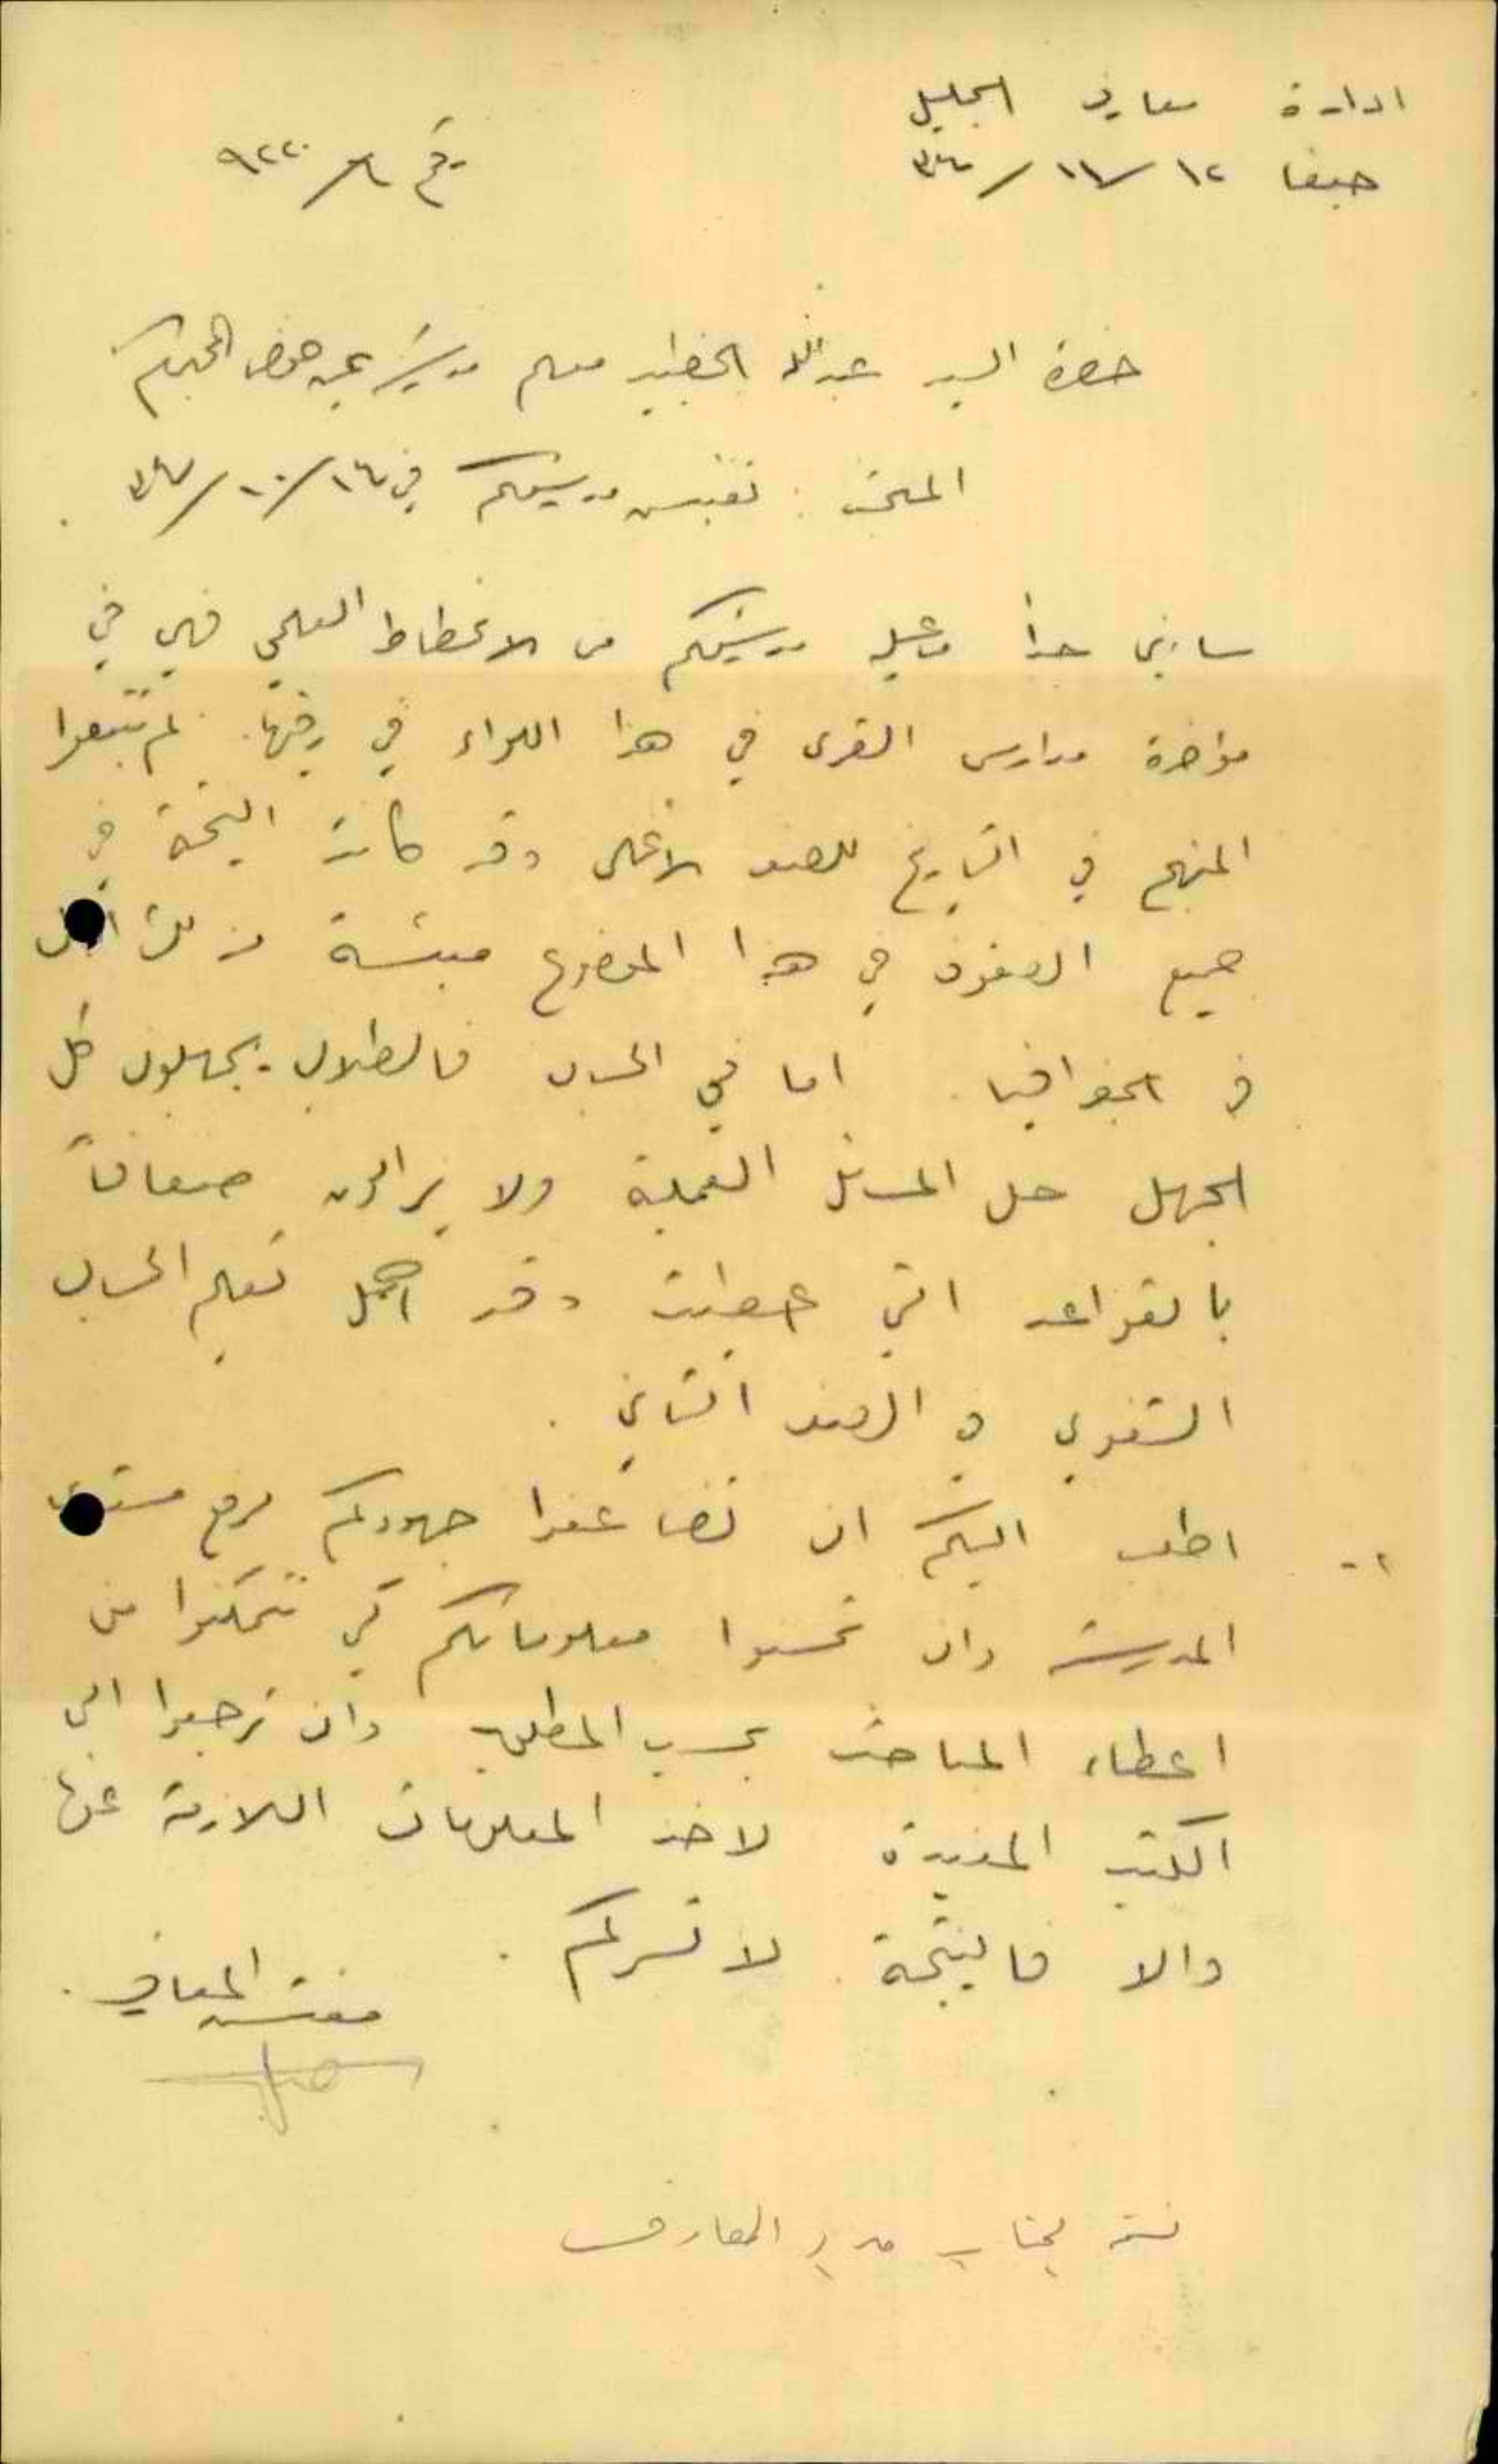 ادارة معارف الجليل
حيفا ١٢/١١/
رقم
حضرة السيد عبدالله الخطيب معلم مدرسة عين حوض المحترم
المبحث : تفتيش مدرستكم في
ساءني جدا ما عليه مدرستكم من الانحطاط العلمي فهي في
مؤخرة مدارس القرى في هذا اللواء في رقيها. لم تتبعوا
المنهج في التاريخ للصف الاعلى وقد كانت النتيجة في
جميع الصفوف في هذا الموضوع
في الجغرافيا. اما في الحساب فالطلاب يجهلون كل
الجهل حل المسائل العملية ولا يزالون ضعافاً
بالقواعد التي اعطيت وقد اهمل تعليم الحساب
الشفوي في الصف الثاني .
٢- اطلب اليكم ان تضاعفوا جهودكم لرفع مستوى
المدرسة وان تحسنوا معلوماتكم كي تتمكنوا من
اعطاء المباحث بحسب المطلوب وان ترجعوا الى
الكتب المفيدة لاخذ المعلومات اللازمة عنها
والا فالنتيجة لا تسركم .
مفتش المعارف
نسخة لجناب مدير المعارف